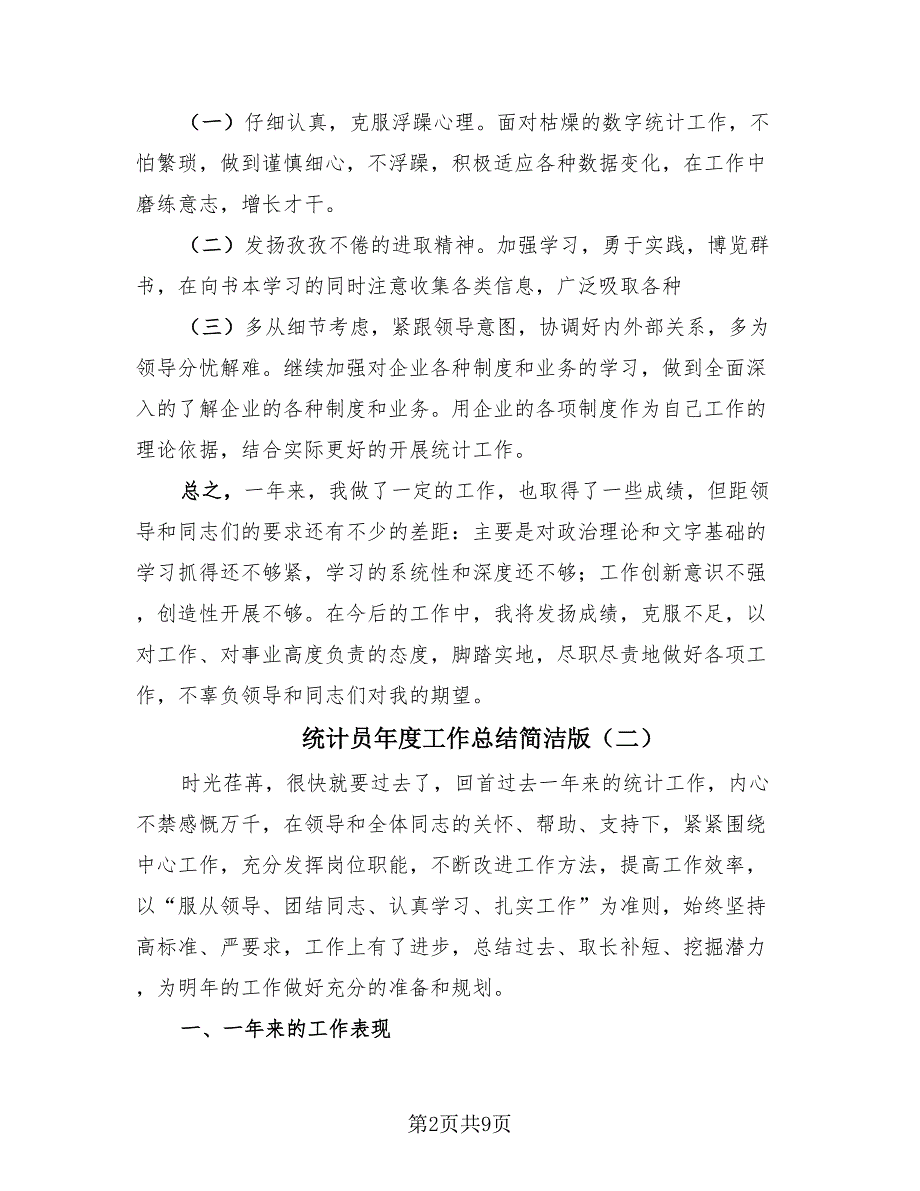 （一）仔细认真，克服浮躁心理。面对枯燥的数字统计工作，不
怕繁琐，做到谨慎细心，不浮躁，积极适应各种数据变化，在工作中
磨练意志，增长才干。
（二）发扬孜孜不倦的进取精神。加强学习，勇于实践，博览群
书，在向书本学习的同时注意收集各类信息，广泛吸取各种
（三）多从细节考虑，紧跟领导意图，协调好内外部关系，多为
领导分忧解难。继续加强对企业各种制度和业务的学习，做到全面深
入的了解企业的各种制度和业务。用企业的各项制度作为自己工作的
理论依据，结合实际更好的开展统计工作。
总之，一年来，我做了一定的工作，也取得了一些成绩，但距领
导和同志们的要求还有不少的差距：主要是对政治理论和文字基础的
学习抓得还不够紧，学习的系统性和深度还不够；工作创新意识不强
，创造性开展不够。在今后的工作中，我将发扬成绩，克服不足，以
对工作、对事业高度负责的态度，脚踏实地，尽职尽责地做好各项工
作，不辜负领导和同志们对我的期望。
统计员年度工作总结简洁版（二）
时光荏苒，很快就要过去了，回首过去一年来的统计工作，内心
不禁感慨万千，在领导和全体同志的关怀、帮助、支持下，紧紧围绕
中心工作，充分发挥岗位职能，不断改进工作方法，提高工作效率，
以“服从领导、团结同志、认真学习、扎实工作”为准则，始终坚持
高标准、严要求，工作上有了进步，总结过去、取长补短、挖掘潜力
，为明年的工作做好充分的准备和规划。
一、一年来的工作表现
第2页共9页